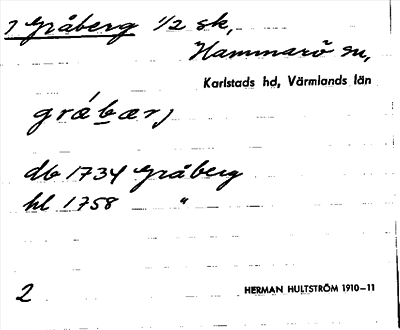 7 Gråberg 1/2 sk,
Hammarö sn,
Karlstads hd, Värmlands län
gråbærj
db 1734 Gråberg
hl 1758 "
2
HERMAN HULTSTRÖM 1910–11